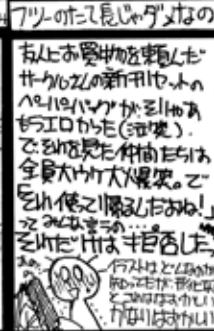 フツーのたて長じゃダメなの
友人にお買物を頼んだ
サークルさんの新刊セットの
ペーパーバッグがそりゃあ
もうエロかった(泣笑)。
でそれを見た仲間たちは
全員大ウケ大爆笑。で
「それ使って帰るんだよね!」
ってみんな言うの…。
それだけは拒否した
イラストは